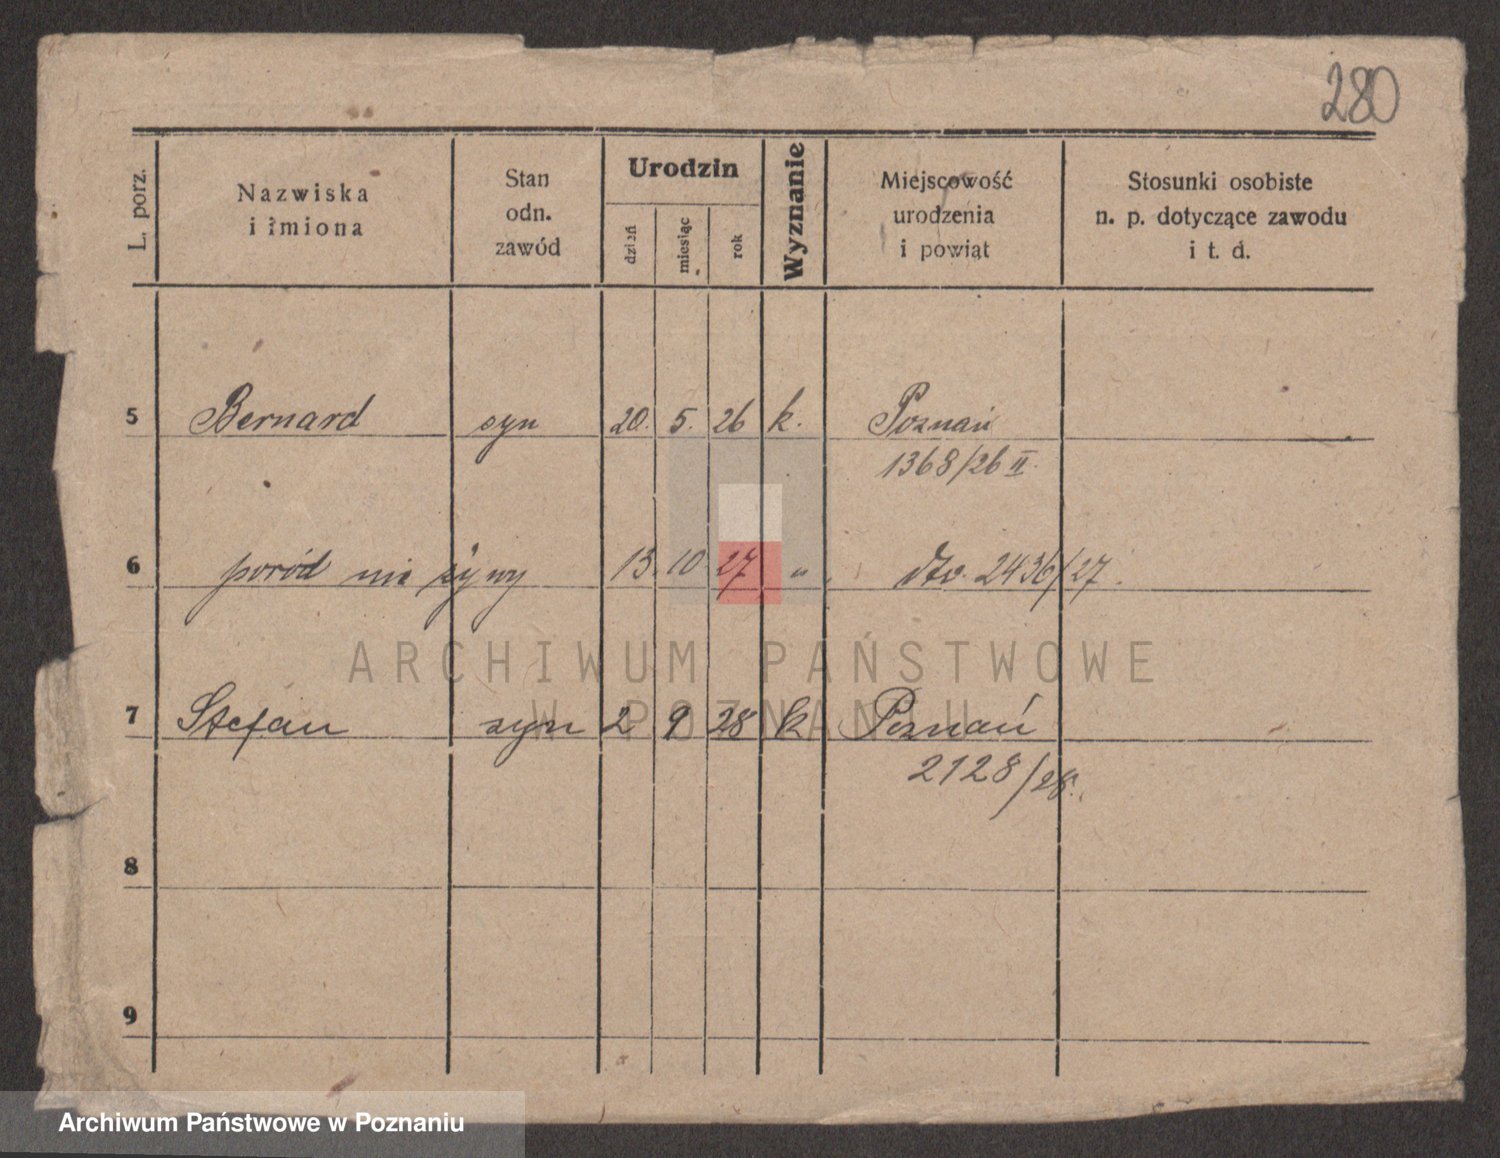 280
L. porz.
Nazwiska
i imiona
Stan
odn.
zawód
Urodzin
dzień
miesiąc
rok
Wyznanie
Miejscowość
urodzenia
i powiat
Stosunki osobiste
n. p. dotyczące zawodu
i t. d.
5 Bernard syn 20. 5. 26 k. Poznań
1368/26 II.
6 poród nie żywy 13. 10 27 „ dto. 2436/27.
ARCHIWUM PAŃSTWOWE
W POZNANIU
7 Stefan syn 2 9 28 k Poznań
2128/28.
8
9
Archiwum Państwowe w Poznaniu